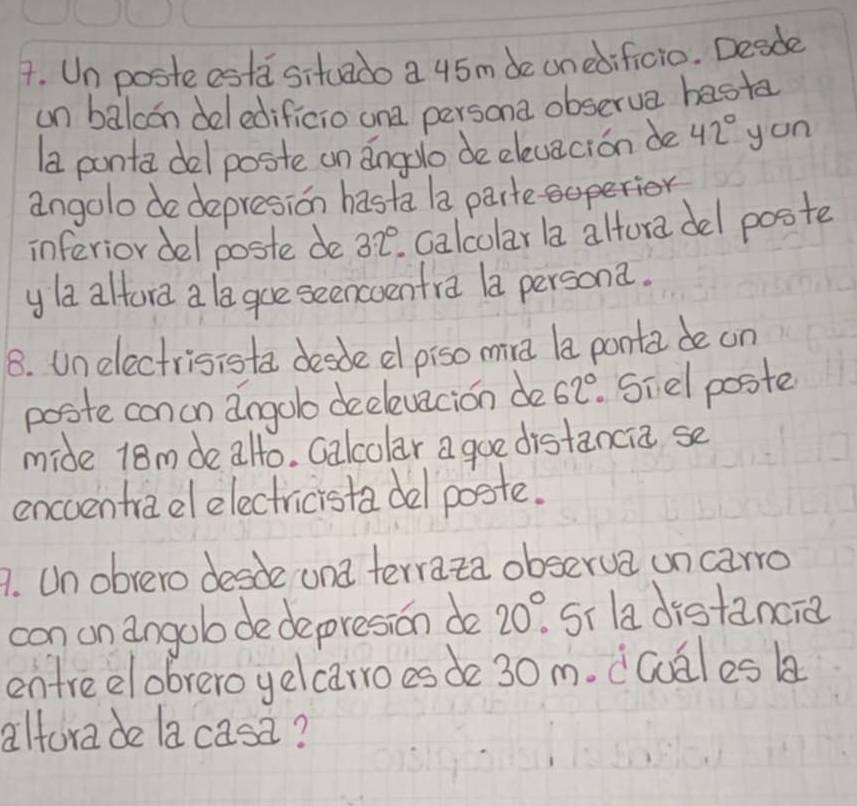 7. Un poste está situado a 45m de un edificio. Desde
un balcón del edificio una persona observa hasta
la punta del poste un ángulo de elevación de 42° y un
angulo de depresión hasta la parte superior
inferior del poste de 32°. Calcular la altura del poste
y la altura a la que se encuentra la persona.
8. Un electrisista desde el piso mira la punta de un
poste con un ángulo de elevación de 62°. Si el poste
mide 18m de alto. Calcular a que distancia se
encuentra el electricista del poste.
9. Un obrero desde una terraza observa un carro
con un angulo de depresión de 20°. Si la distancia
entre el obrero y el carro es de 30 m. ¿Cuál es la
altura de la casa?